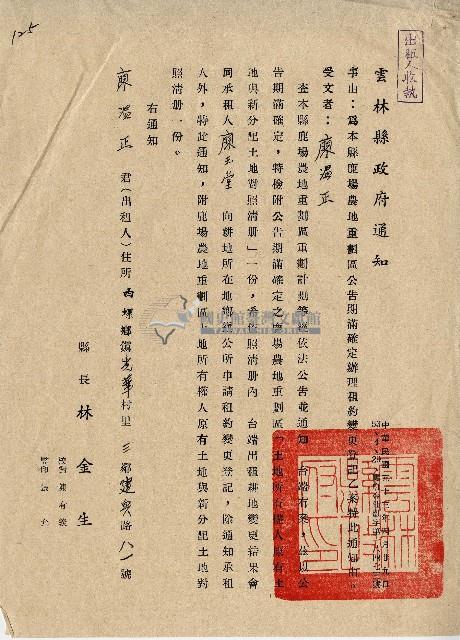 125
出租人收執
雲林縣政府通知
事由：為本縣鹿場農地重劃區公告期滿確定辦理租約變更登記乙案特此通知由。
受文者：廖溫正
查本縣鹿場農地重劃區重劃計劃
依法公告並通知　台端有案，茲以公
告期滿確定，特檢附公告期滿確定之鹿場農地重劃區「土地所有權人原有土
地與新分配土地對照清册」一份，
照清册內　台端出租耕地變更結果會
同承租人廖玉堂　向耕地所在地鄉鎮公所申請租約變更登記，除通知承租
人外，特此通知，附鹿場農地重劃區土地所有權人原有土地與新分配土地對
照清册一份。
右通知
廖溫正　君（出租人）住所　西螺鄉鎮光華村里　鄉建興路八一號
縣長　林金生